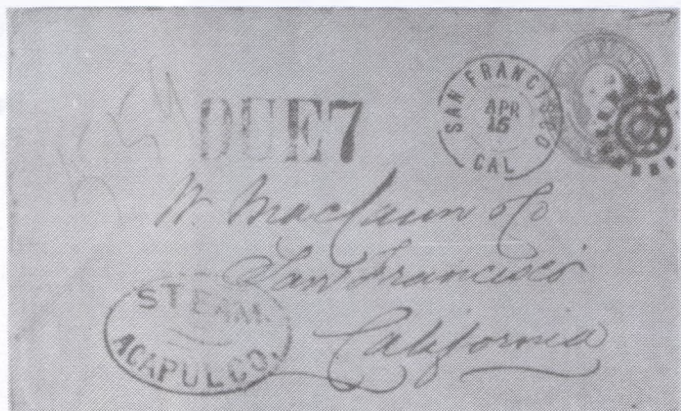 DUE 7
SAN FRANCISCO
APR
15
CAL
W. & Co
San Francisco
California
STEAM
ACAPULCO.